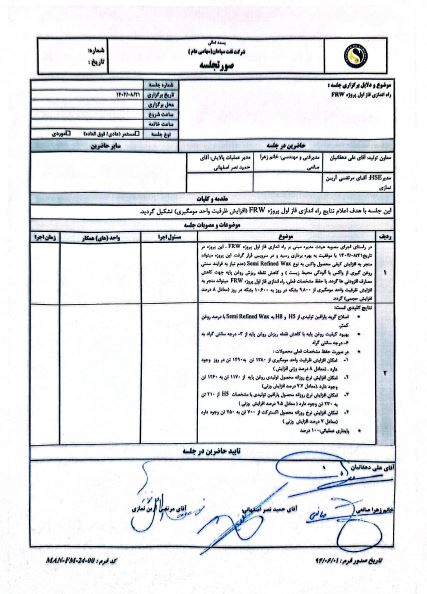 بسمه تعالی
شرکت نفت سپاهان(سهامی عام)
صورتجلسه
شماره:
تاریخ:
موضوع و دلایل برگزاری جلسه :
راه اندازی فاز اول پروژه FRW
شماره جلسه
تاریخ برگزاری
۱۴۰۲/۰۸/۲۱
محل برگزاری
ساعت شروع
ساعت خاتمه
نوع جلسه
مستمر (عادی/ فوق العاده)
موردی
حاضرین در جلسه
سایر حاضرین
معاون تولید: آقای علی دهقانیان
مدیر فنی و مهندسی: خانم زهرا
صالحی
مدیر عملیات پالایش: آقای
حمید نصر اصفهانی
مدیر HSE: آقای مرتضی آرین
نمازی
مقدمه و کلیات
این جلسه با هدف اعلام نتایج راه اندازی فاز اول پروژه FRW (افزایش ظرفیت واحد مومگیری) تشکیل گردید.
موضوعات و مصوبات جلسه
ردیف
موضوع
مسئول اجرا
واحد (های) همکار
زمان اجرا
۱
در راستای اجرای مصوبه هیئت مدیره مبنی بر راه اندازی فاز اول پروژه FRW ، این پروژه در
تاریخ ۱۴۰۲/۰۸/۲۱ با موفقیت به بهره برداری رسید و در سرویس قرار گرفت. این پروژه میتواند
منجر به افزایش کیفی محصول واکس به نوع Semi Refined Wax (عدم نیاز به فرایند سنتی
روغن گیری از واکس با آلودگی محیط زیست ) و کاهش نقطه ریزش روغن پایه جهت کاهش
مصرف افزودنی ها گردد. با حفظ مشخصات فعلی، راه اندازی فاز اول پروژه FRW میتواند منجر به
افزایش ظرفیت واحد مومگیری از ۹۸۰۰ بشکه در روز به ۱۰۶۰۰ بشکه در روز (معادل ۸ درصد
افزایش حجمی) گردد.
۲
نتایج کلیدی است:
اصلاح گرید پارافین تولیدی از H5 و H8 به Semi Refined Wax با درصد روغن
کمتر.
بهبود کیفیت روغن پایه با کاهش نقطه ریزش روغن پایه از ۳- درجه سانتی گراد به
۶- درجه سانتی گراد.
در صورت حفظ مشخصات فعلی محصولات :
۱- امکان افزایش ظرفیت واحد مومگیری از ۱۳۸۰ تن به ۱۴۹۰ تن در روز وجود
دارد . (معادل ۸ درصد وزنی افزایش )
۲- امکان افزایش نرخ روزانه محصول تولیدی روغن پایه از ۱۱۷۰ تن به ۱۲۶۰ تن
وجود دارد (معادل ۷.۷ درصد افزایش وزنی )
۳- امکان افزایش نرخ روزانه محصول پارافین تولیدی با مشخصات H5 از ۲۱۰ تن
به ۲۳۰ تن وجود دارد ( معادل ۹.۵ درصد افزایش وزنی )
۴- امکان افزایش نرخ روزانه محصول اکسترکت از ۷۰۰ تن به ۷۵۰ تن وجود دارد
(معادل ۷ درصد افزایش وزنی )
پایداری عملیاتی: ۱۰۰ درصد
تایید حاضرین در جلسه
آقای علی دهقانیان
خانم زهرا صالحی
آقای حمید نصر اصفهانی
آقای مرتضی آرین نمازی
تاریخ صدور فرم: ۹۴/۰۶/۰۱
کد فرم: MAN-FM-24-00